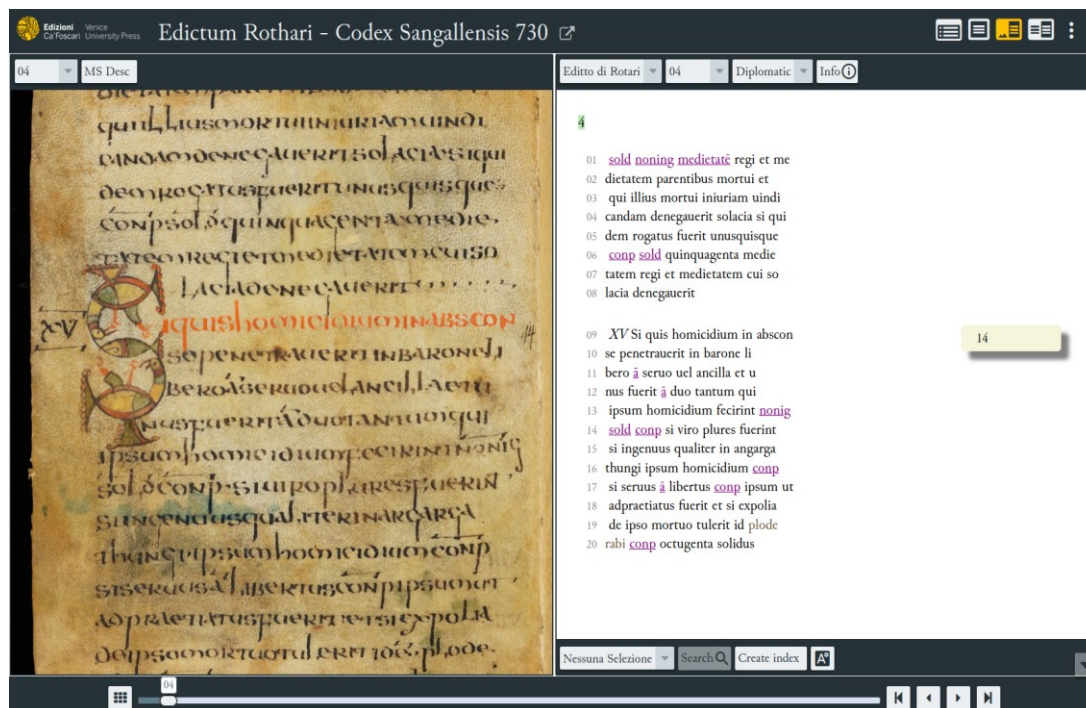 Edizioni Ca'Foscari
Venice University Press
Edictum Rothari - Codex Sangallensis 730
04
MS Desc
quiillius mortui iniuriam uindi
candam denegauerit solacia siqui
dem rogatus fuerit unusquisque
conp sold quinquagenta medie
tatem regi et medietatem cui so
lacia denegauerit
XV
Si quis homicidium in abscon
14
se penetrauerit in barone li
bero ā seruo uel ancilla et u
nus fuerit ā duo tantum qui
ipsum homicidium fecirint nonig
sold conp si uiro plures fuerint
si ingenuus qualiter in argarga
thungi ipsum homicidium conp
si seruus ā libertus conp ipsum ut
adpraetiatus fuerit et si expolia
de ipso mortuo tulerit id plode
Editto di Rotari
04
Diplomatic
Info
4
01 sold noning medietatē regi et me
02 dietatem parentibus mortui et
03 qui illius mortui iniuriam uindi
04 candam denegauerit solacia si qui
05 dem rogatus fuerit unusquisque
06 conp sold quinquagenta medie
07 tatem regi et medietatem cui so
08 lacia denegauerit
09 XV Si quis homicidium in abscon
14
10 se penetrauerit in barone li
11 bero ā seruo uel ancilla et u
12 nus fuerit ā duo tantum qui
13 ipsum homicidium fecirint nonig
14 sold conp si viro plures fuerint
15 si ingenuus qualiter in angarga
16 thungi ipsum homicidium conp
17 si seruus ā libertus conp ipsum ut
18 adpraetiatus fuerit et si expolia
19 de ipso mortuo tulerit id plode
20 rabi conp octugenta solidus
Nessuna Selezione
Search
Create index
A
04